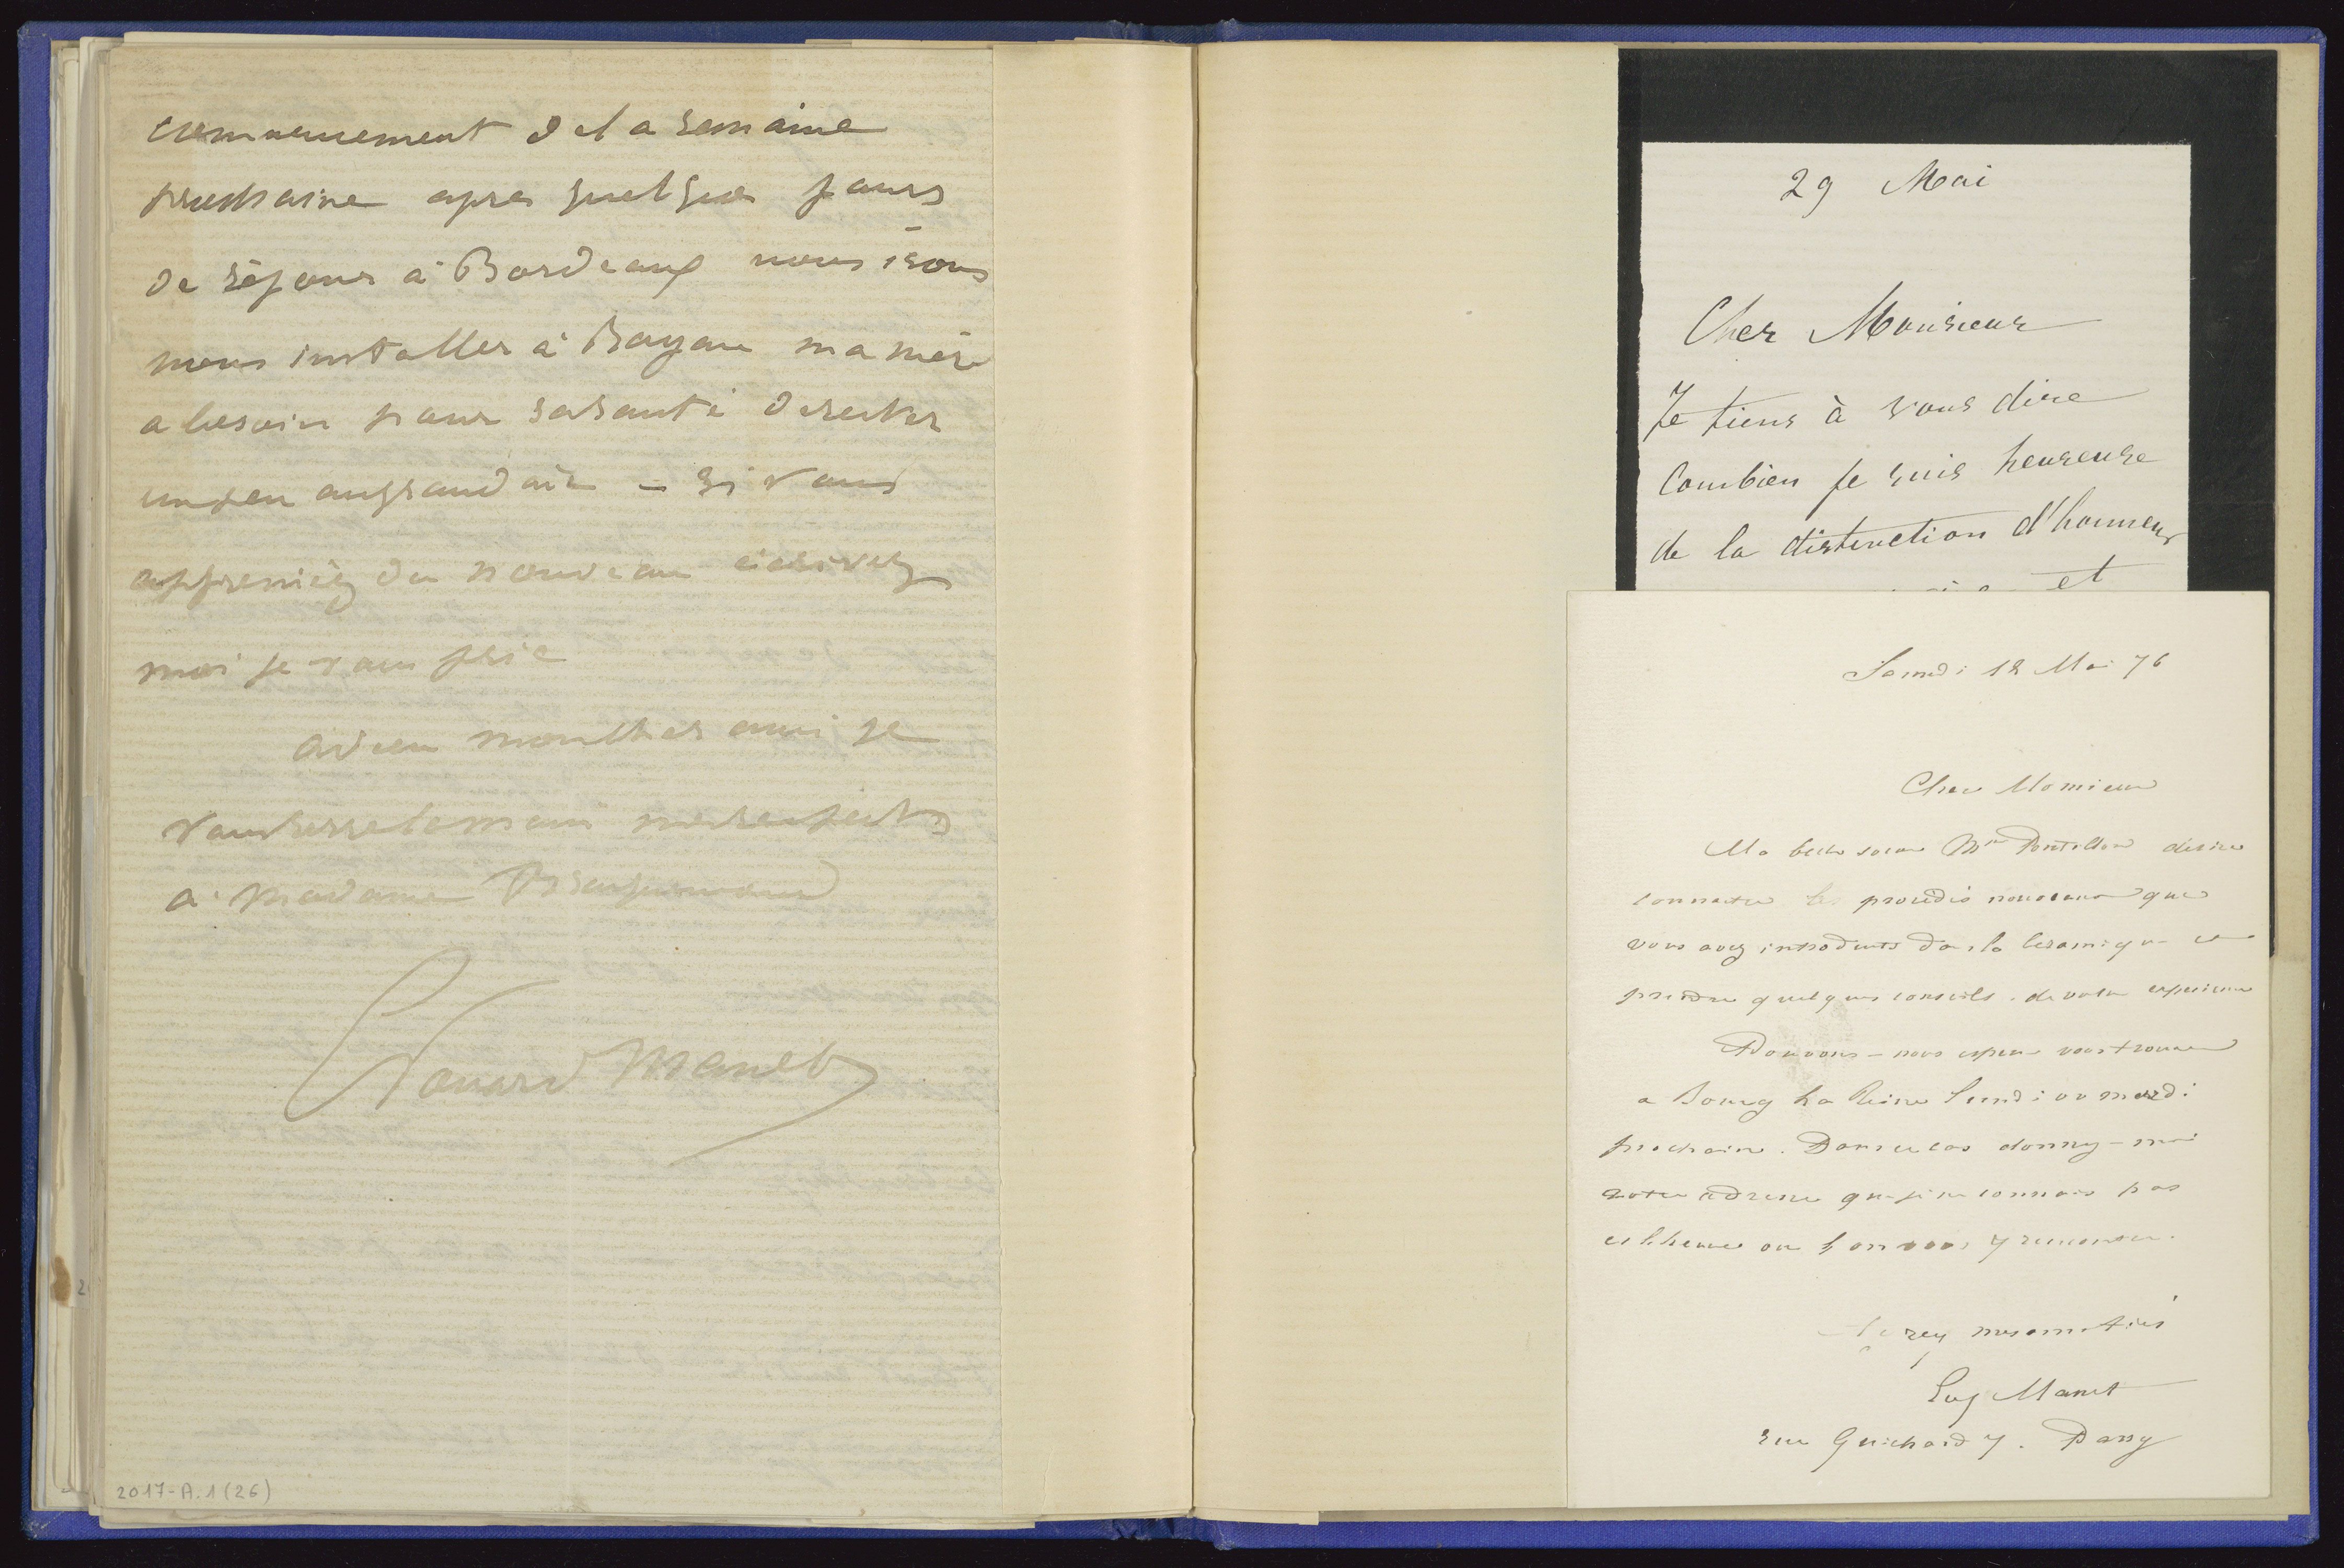 commencement de la semaine
prochaine apres quelques jours
de séjour à Bordeaux nous irons
nous installer à Royan ma mère
a besoin pour sa santé de rester
un peu au grand air – si vous
appreniez du nouveau écrivez
moi je vous prie
adieu mon cher ami je
vous serre la main mes respects
à Madame Bracquemond
Edouard Manet
2017-A.1(26)
29 Mai
Cher Monsieur
Je tiens à vous dire
Combien je suis heureuse
de la distinction d'honneur
et
Samedi 18 Mai 76
Cher Monsieur
Ma belle soeur Mme Pontillon desire
connaitre les procédés nouveaux que
vous avez introduits dans la ceramique et
prendre quelques conseils de votre experience
Pouvons-nous esperer vous trouver
a Bourg La Reine lundi ou mardi
prochain. Dans ce cas donnez-moi
votre adresse que je ne connais pas
et l'heure ou l'on vous y rencontre.
mes amitiés
Eug Manet
rue Guichard 7. Passy